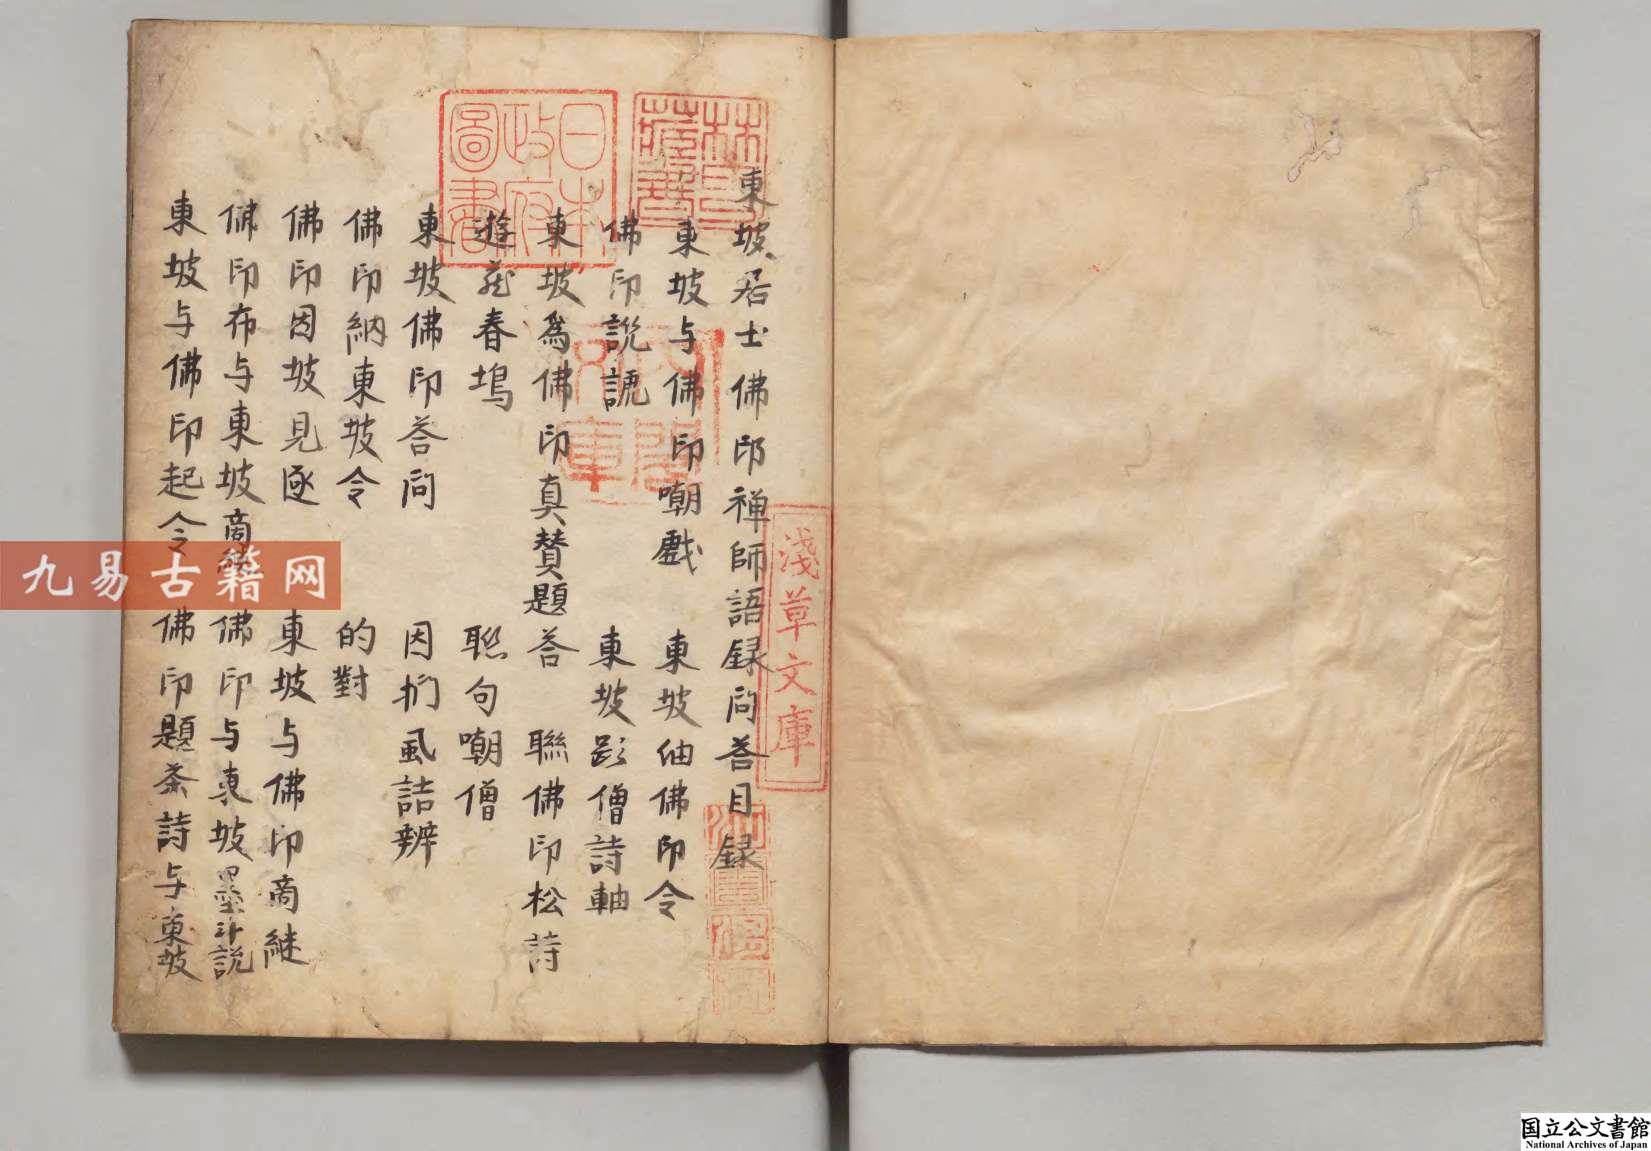 東坡居士佛印禅師語録问荅目録
東坡与佛印嘲戲　東坡佛印令
佛印説　東坡僧詩軸
東坡為佛印真賛題荅　聯佛印松詩
遊春塢　聮句嘲僧
東坡佛印荅问　因扪虱詰辨
佛印納東坡令　的對
佛印因坡見逐　東坡与佛印商继
佛印布与東坡商　佛印与東坡墨斗説
東坡与佛印起令　佛印題茶詩与東坡
日本政府圖書
林氏藏書
淺草文庫
九易古籍网
国立公文書館
National Archives of Japan